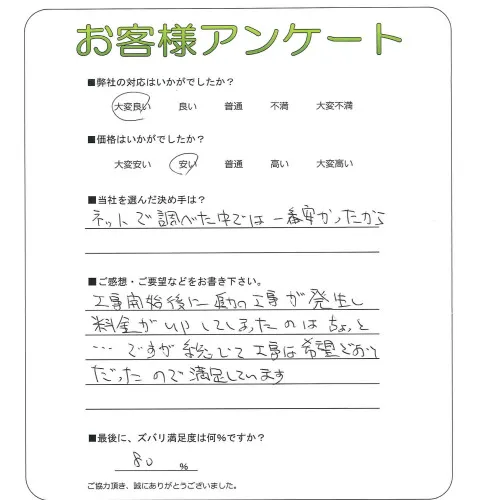 お客様アンケート
■弊社の対応はいかがでしたか？
大変良い 良い 普通 不満 大変不満
■価格はいかがでしたか？
大変安い 安い 普通 高い 大変高い
■当社を選んだ決め手は？
ネットで調べた中では一番安かったから
■ご感想・ご要望などをお書き下さい。
工事開始後に 工事が発生し
料金がupしてしまったのはちょっと
…ですが 総じて工事は希望どおり
だったので満足しています
■最後に、ズバリ満足度は何％ですか？
80 %
ご協力頂き、誠にありがとうございました。